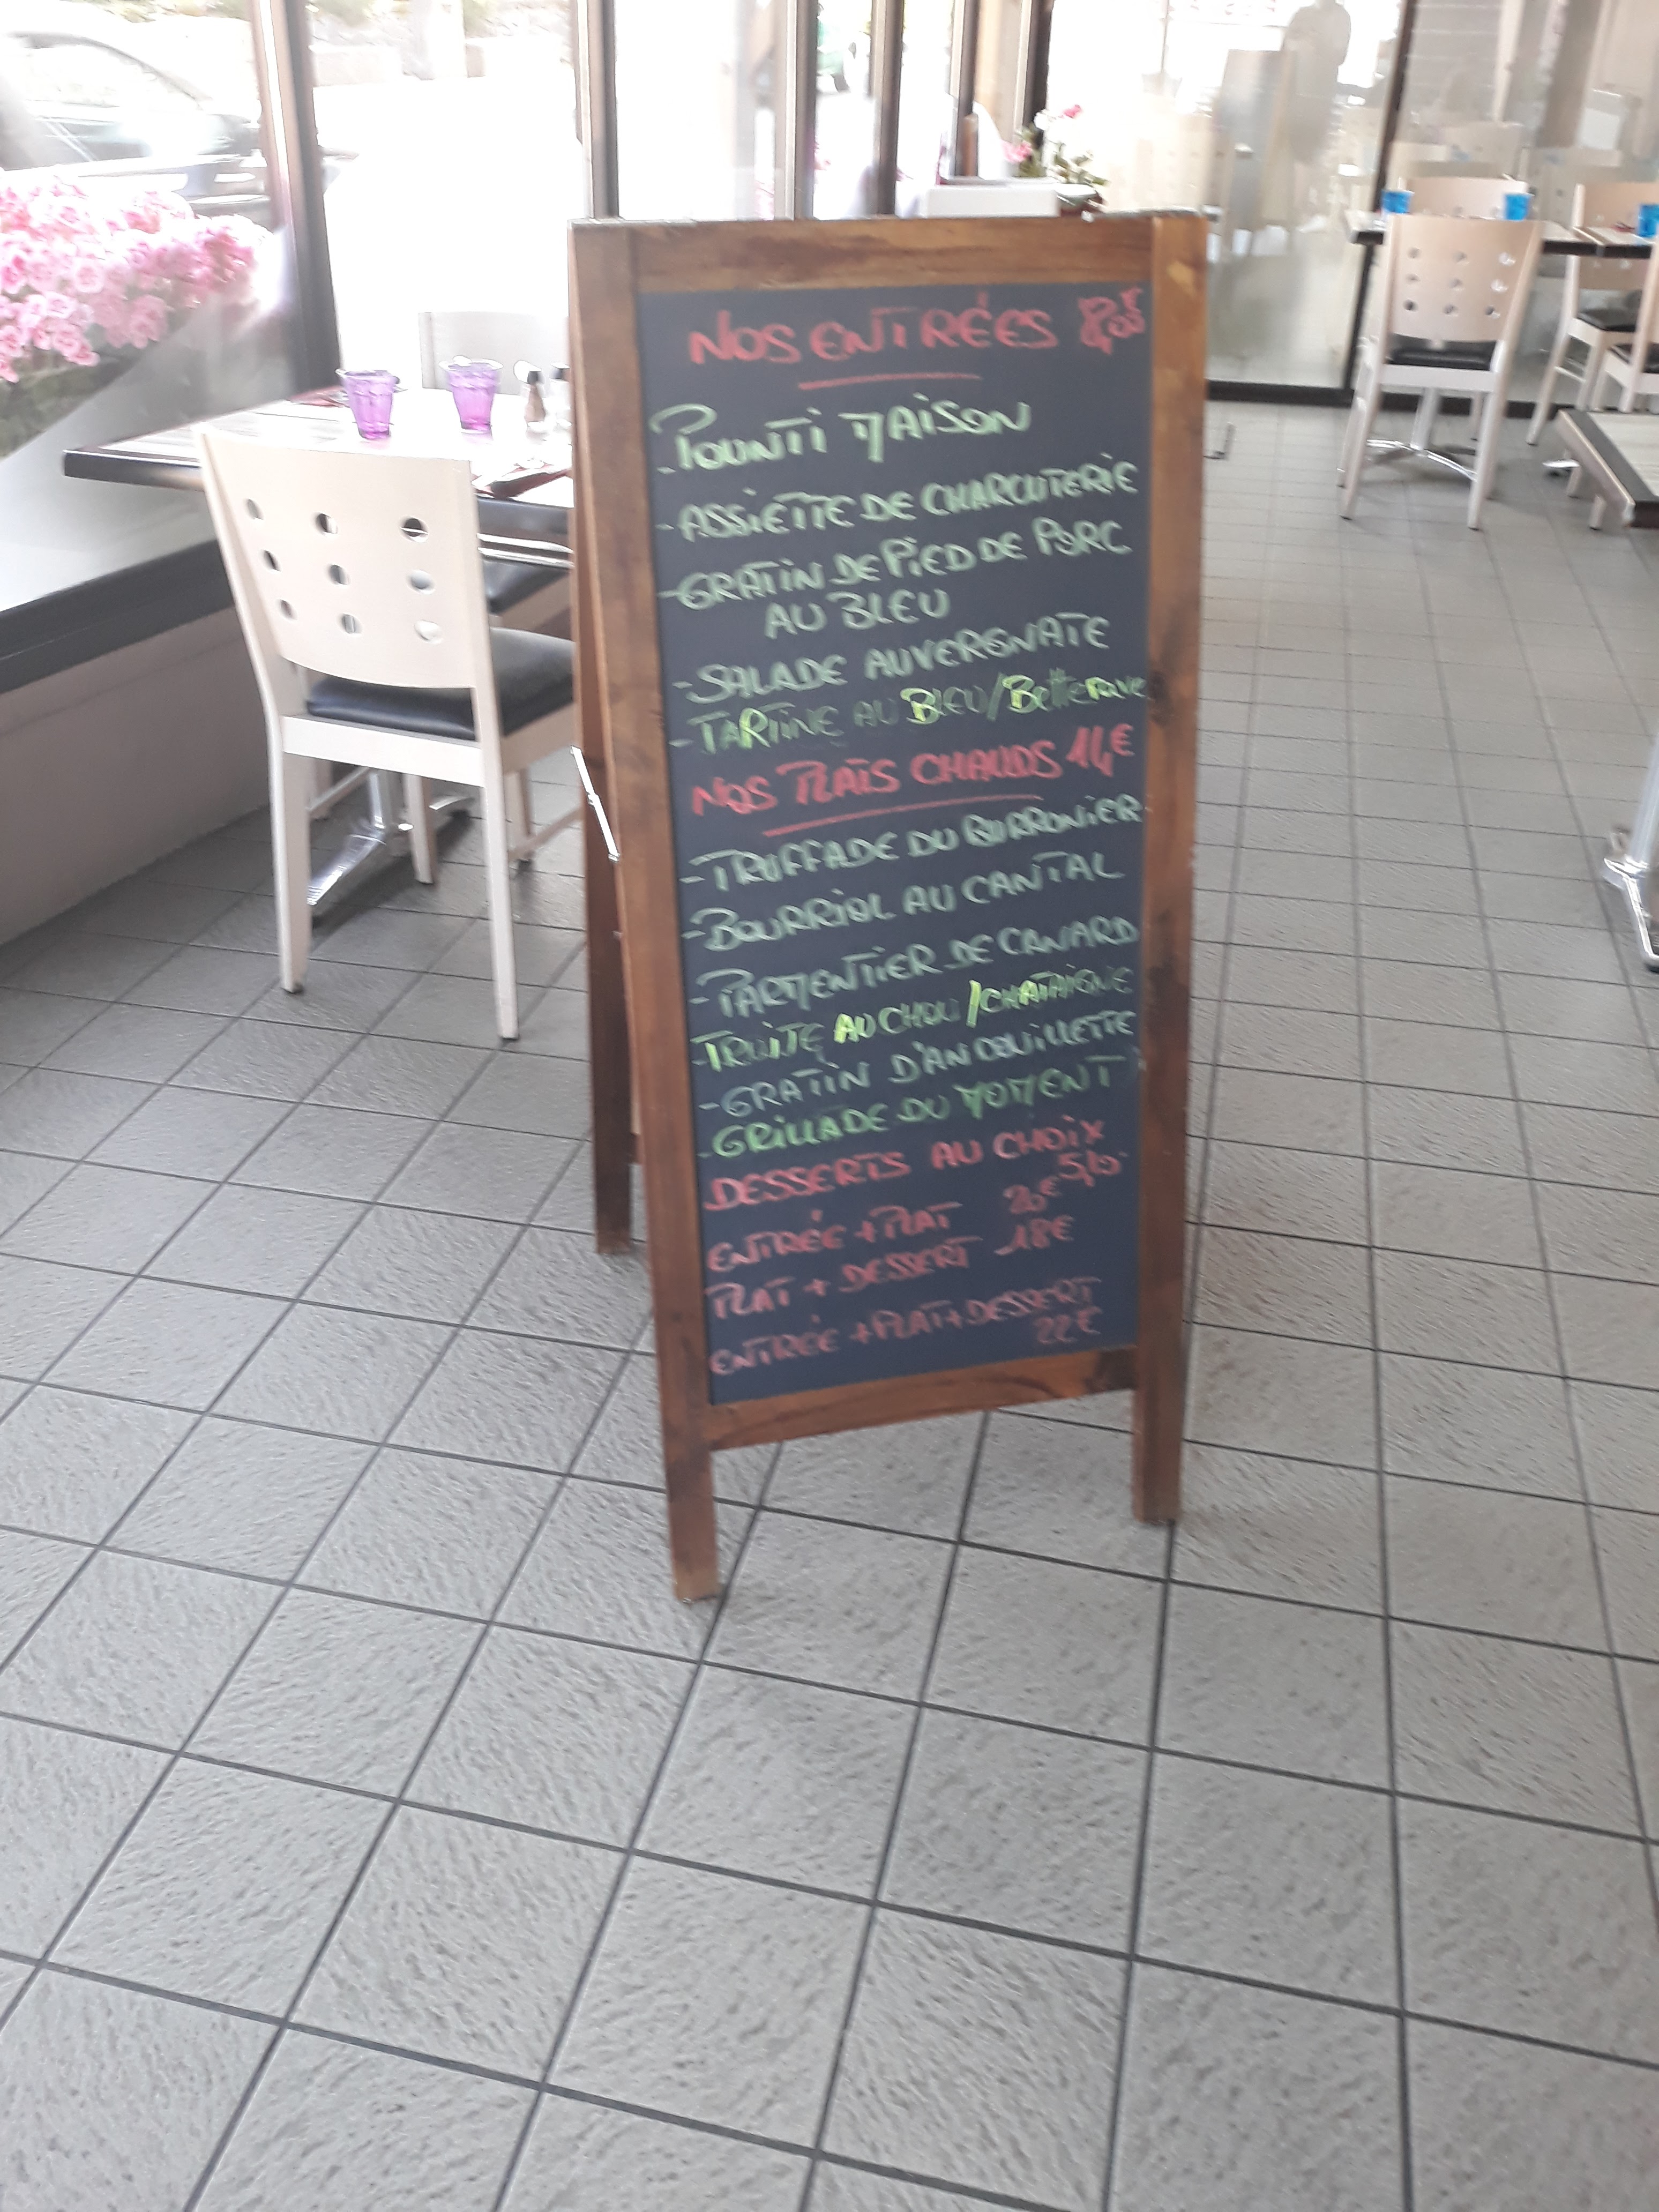 NOS ENTRÉES
-POUNTI MAISON
-ASSIETTE DE CHARCUTERIE
-GRATIN DE PIED DE PORC
AU BLEU
-SALADE AUVERGNATE
-TARTINE AU BLEU/Betterave
NOS PLATS CHAUDS 14€
-TRUFFADE DU BURRONIER
-BOURRIOL AU CANTAL
-PARMENTIER DE CANARD
-TRUITE AU CHOU/CHATAIGNE
-GRATIN D'ANDOUILLETTE
-GRILLADE DU MOMENT
DESSERTS AU CHOIX
ENTRÉE + PLAT 20€
PLAT + DESSERT 18€
ENTRÉE +PLAT+DESSERT
22€